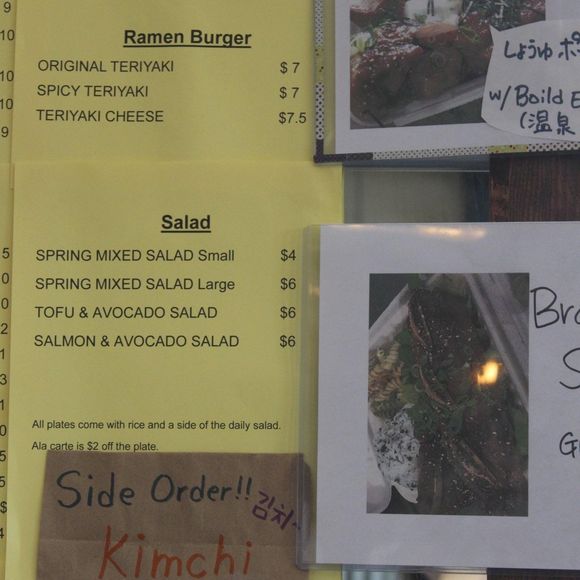 Ramen Burger
ORIGINAL TERIYAKI $7
SPICY TERIYAKI $7
TERIYAKI CHEESE $7.5
Salad
SPRING MIXED SALAD Small $4
SPRING MIXED SALAD Large $6
TOFU & AVOCADO SALAD $6
SALMON & AVOCADO SALAD $6
All plates come with rice and a side of the daily salad.
Ala carte is $2 off the plate.
Side Order!!
김치~
Kimchi
しょうゆ ポ
w/ Boild E
(温泉